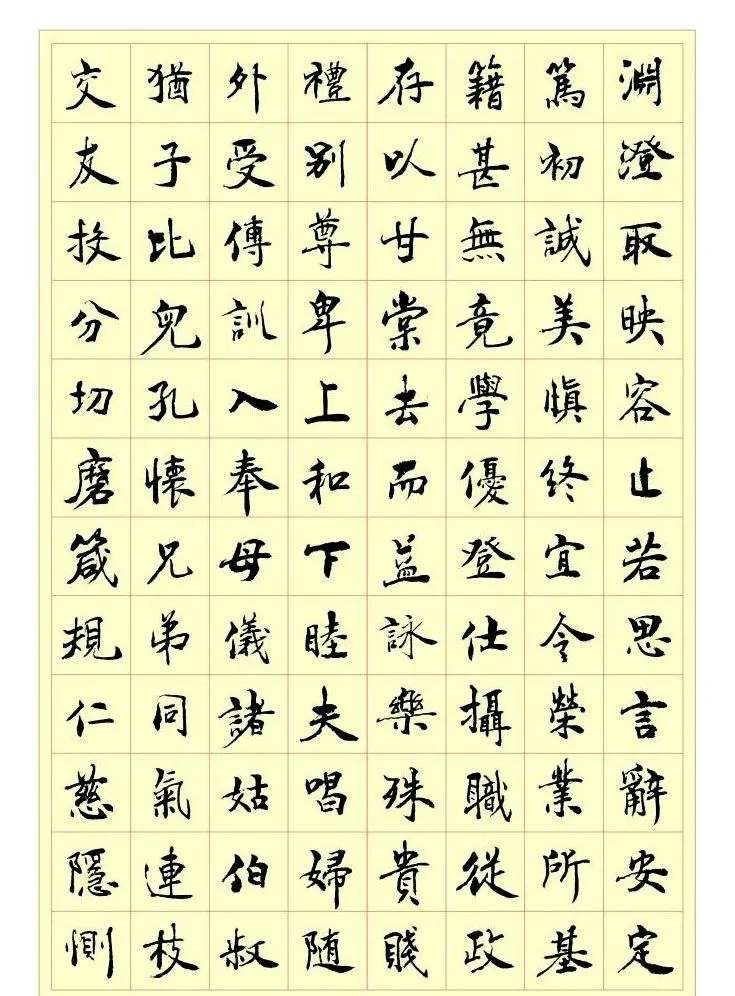 淵澄取映容止若思言辭安定
篤初誠美慎終宜令榮業所基
籍甚無竟學優登仕攝職從政
存以甘棠去而益詠樂殊貴賤
禮別尊卑上和下睦夫唱婦随
外受傅訓入奉母儀諸姑伯叔
猶子比兒孔懷兄弟同氣連枝
交友投分切磨箴規仁慈隱惻